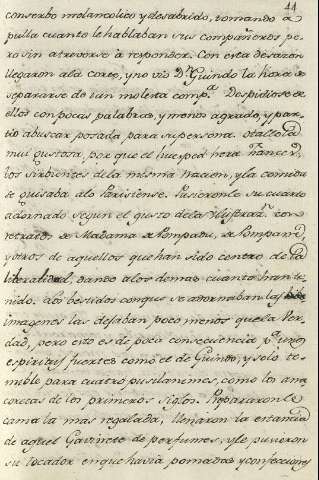 44
conserbo melancolico y desabrido, tomando a
pulla cuanto le hablaban sus compañeros pe-
ro sin atreverse à responder. Con esta desazon
llegaron ala corte, y no vio Dn Guindo la hora de
separarse de tan molesta comp.a Despidiose de
ellos con pocas palabras, y menos agrado, y par-
tio abuscar posada para su persona.
mui gustosa, por que el huesped hera
los sirbientes de la misma Nacion, y la comida
se guisaba alo Parisiense. Pusieronle su cuarto
adornado segun el gusto de la Ylustraz.n con
retratos de Madama de Pompadu, de
y otros de aquellos que han sido centro de la
liberalidad, dando alos demas cuanto han te-
nido. Los bestidos conque se adornaban las
imagenes las dejaban poco menos que la Ver-
dad, pero esto es de poca consecuencia p.a unos
espiritus fuertes como el de Guindo, y solo te-
mible para cuatro pusilanimes, como los ana-
coretas de los primeros siglos. Prepararonle
cama la mas regalada, llenaron la estancia
de aquel Gavinete de perfumes, y le pusieron
su tocador en que havia pomadas y confecciones